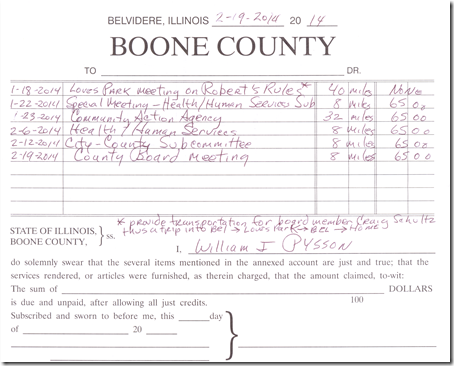 BELVIDERE, ILLINOIS 2-19-2014 20 14
BOONE COUNTY
TO DR.
1-18-2014 Loves Park meeting on Robert's Rules* 40 miles None
1-22-2014 Special Meeting - Health/Human Services Sub 8 miles 65.00
1-23-2014 Community Action Agency 32 miles 65.00
2-6-2014 Health/Human Services 8 miles 65.00
2-12-2014 City-County Subcommittee 8 miles 65.00
2-19-2014 County Board Meeting 8 miles 65.00
* provide transportation for board member Craig Schultz
thus a trip into Bel → Loves Park → BEL → Home
STATE OF ILLINOIS,
BOONE COUNTY, } ss.
I. William J Pysson
do solemnly swear that the several items mentioned in the annexed account are just and true; that the
services rendered, or articles were furnished, as therein charged, that the amount claimed, to-wit:
The sum of DOLLARS
100
is due and unpaid, after allowing all just credits.
Subscribed and sworn to before me, this day
of 20